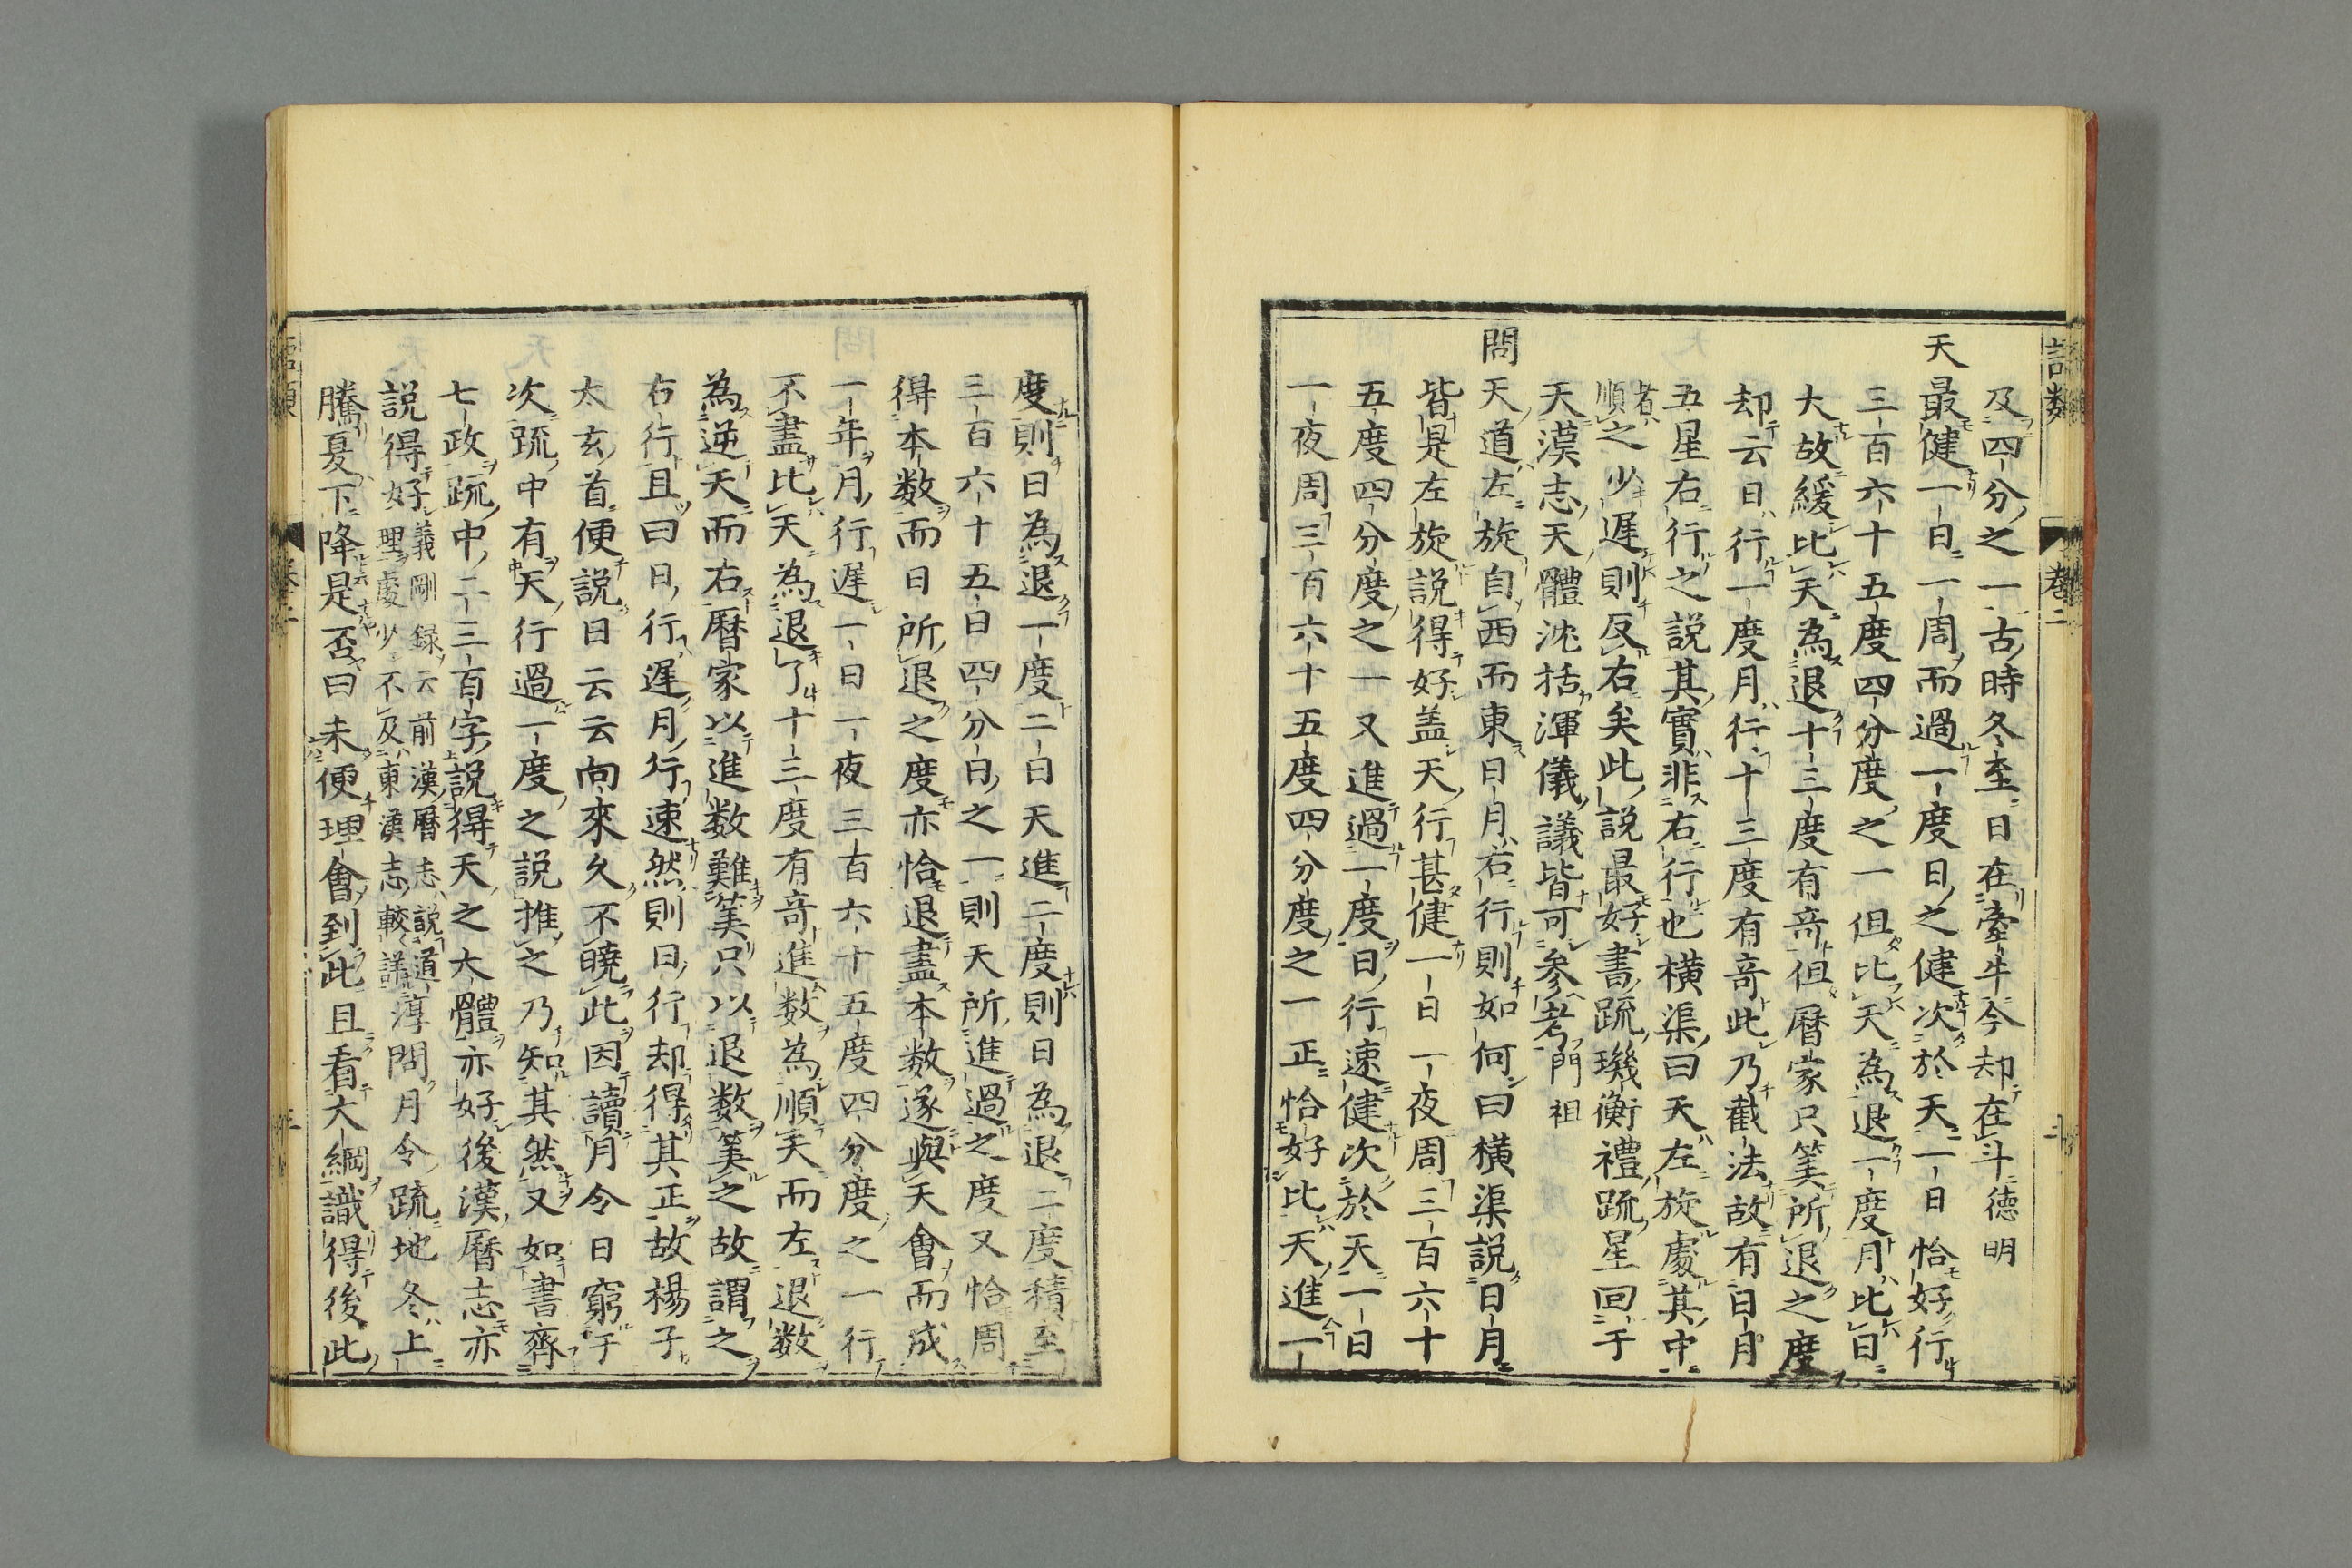 語類 卷二 二
及四分之一古時冬至日在牽牛今却在斗德明
天最健一日一周而過一度日之健次於天一日恰好行
三百六十五度四分度之一但比天為退一度月比日
大故緩比天為退十三度有竒但曆家只筭所退之度
却云日行一度月行十三度有竒此乃截法故有日月
五星右行之說其實非右行也橫渠曰天左旋處其中
者順之少遲則反右矣此說最好書疏璣衡禮疏星回于
天漢志天體沈括渾儀議皆可參考門祖
問天道左旋自西而東日月右行則如何曰橫渠說日月
皆是左旋說得好盖天行甚健一日一夜周三百六十
五度四分度之一又進過一度日行速健次於天一日
一夜周三百六十五度四分度之一正恰好比天進一
度則日為退一度二日天進二度則日為退二度積至
三百六十五日四分日之一則天所進過之度又恰周
得本数而日所退之度亦恰退盡本数遂與天會而成
一年月行遲一日一夜三百六十五度四分度之一行
不盡比天為退了十三度有竒進数為順天而左退数
為逆天而右曆家以進数難筭只以退数筭之故謂之
右行且曰日行遲月行速然則日行却得其正故楊子
太玄首便說日云云向來久不曉此因讀月令日窮于
次疏中有天行過一度之說推之乃知其然又如書齊
七政疏中二三百字說得天之大體亦好後漢曆志亦
說得好義剛録云前漢曆志說道理處少不及東漢志較詳淳問月令疏地冬上
騰夏下降是否曰未便理會到此且看大綱識得後此
語類 卷二 三